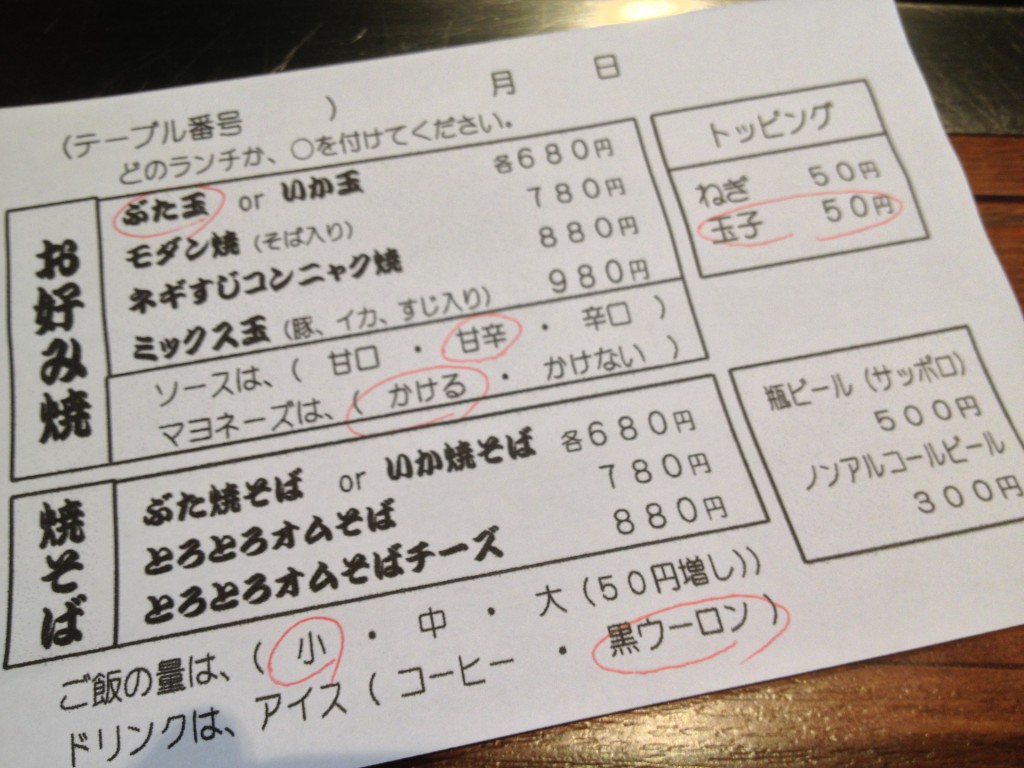 (テーブル番号　　　) 　　月　　日
どのランチか、○を付けてください。
お好み焼
ぶた玉 or いか玉 各680円
モダン焼 (そば入り) 780円
ネギすじコンニャク焼 880円
ミックス玉 (豚、イカ、すじ入り) 980円
ソースは、( 甘口 ・ 甘辛 ・ 辛口 )
マヨネーズは、( かける ・ かけない )
焼そば
ぶた焼そば or いか焼そば 各680円
とろとろオムそば 780円
とろとろオムそばチーズ 880円
ご飯の量は、( 小 ・ 中 ・ 大(50円増し))
ドリンクは、アイス( コーヒー ・ 黒ウーロン )
トッピング
ねぎ 50円
玉子 50円
瓶ビール(サッポロ)
500円
ノンアルコールビール
300円